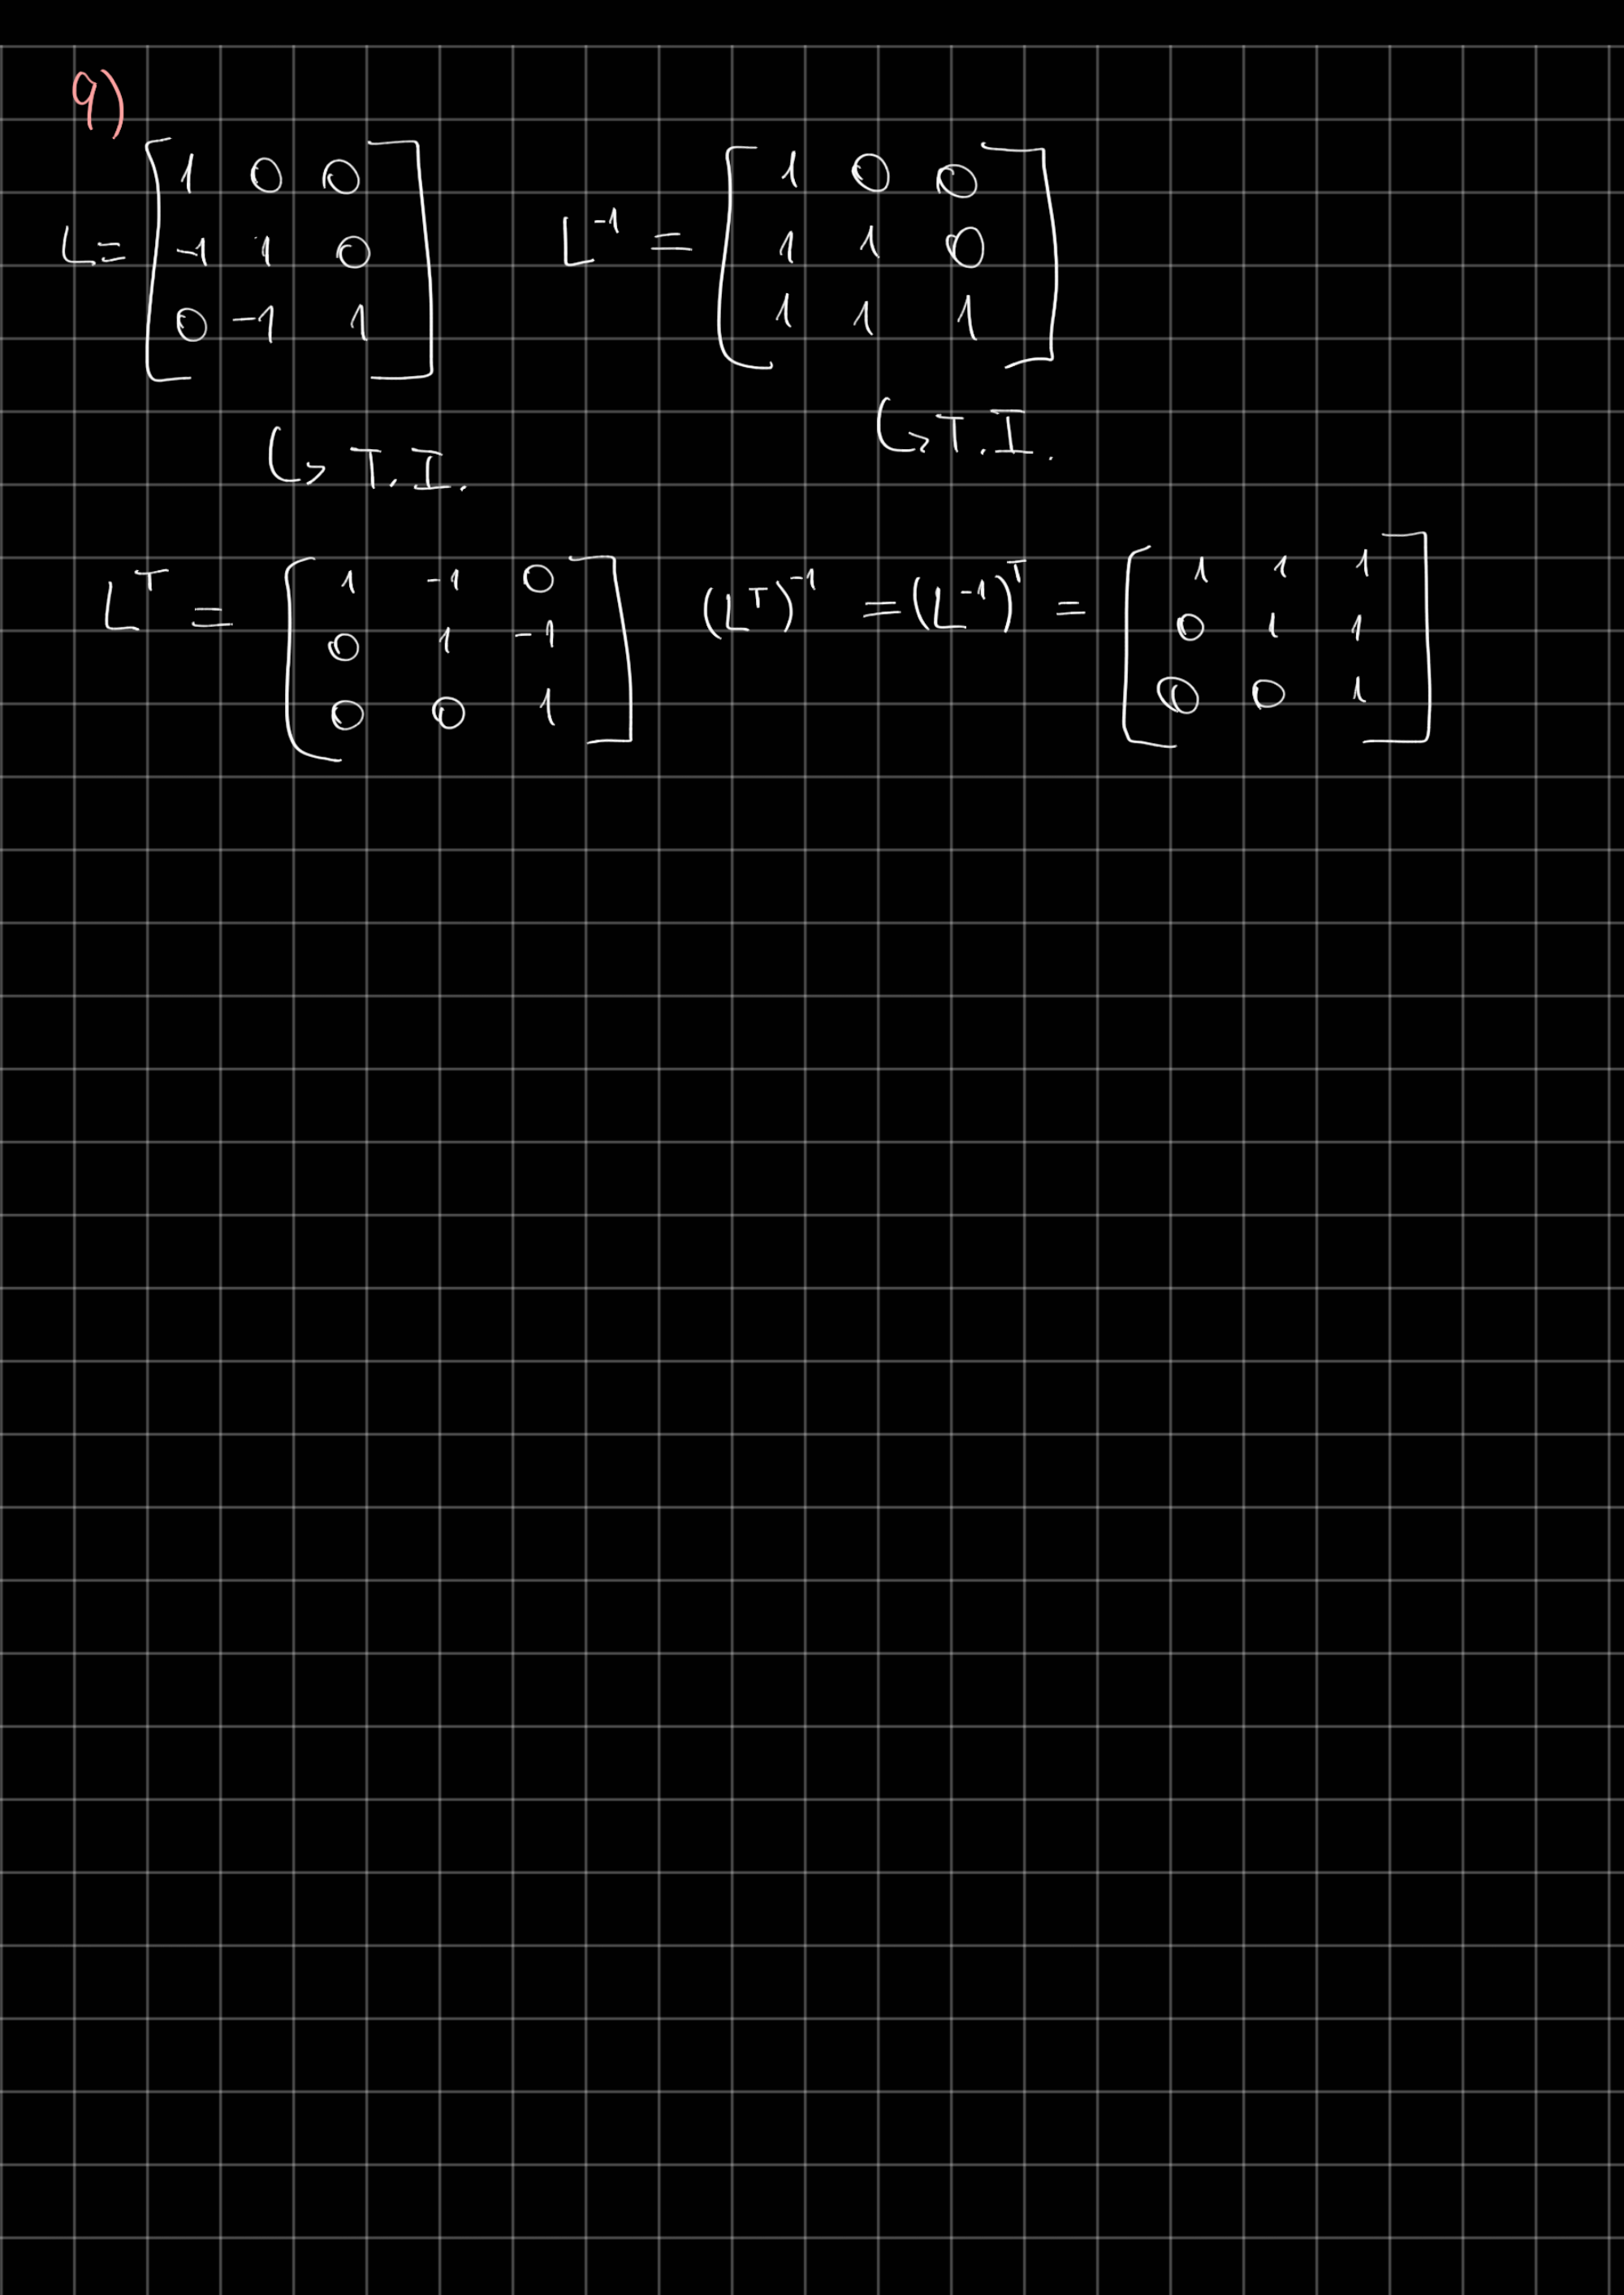 9)
L = [1 0 0; -1 1 0; 0 -1 1] L^-1 = [1 0 0; 1 1 0; 1 1 1]
↳ T.I. ↳ T.I.
L^T = [1 -1 0; 0 1 -1; 0 0 1] (L^T)^-1 = (L^-1)^T = [1 1 1; 0 1 1; 0 0 1]